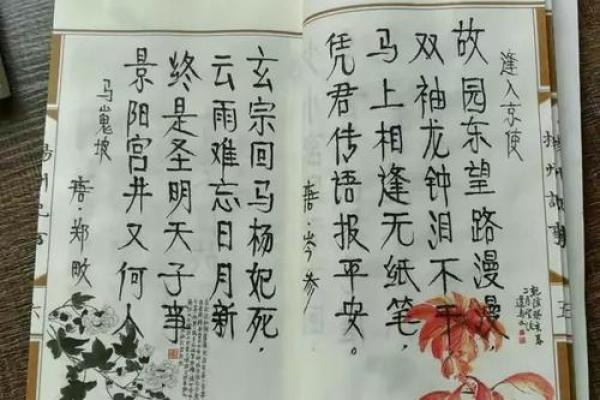 逢入京使
故园东望路漫漫,
双袖龙钟泪不干
马上相逢无纸笔,
凭君传语报平安。
唐·岑参
玄宗回马杨妃死,
云雨难忘日月新
终是圣明天子事
景阳宫井又何人
马嵬坡
唐·郑畋
五
六